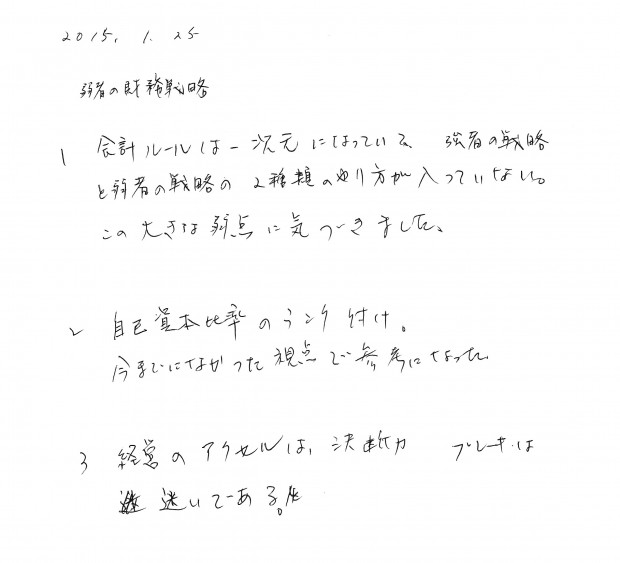 2015. 1. 25
弱者の財務戦略
1 会計ルールは一次元になっていて、強者の戦略
と弱者の戦略の2種類のやり方が入っていない。
この大きな弱点に気づきました。
2 自己資本比率のランク付け。
今までになかった視点で参考になった
3 経営のアクセルは、決断力 ブレーキは
迷いである。